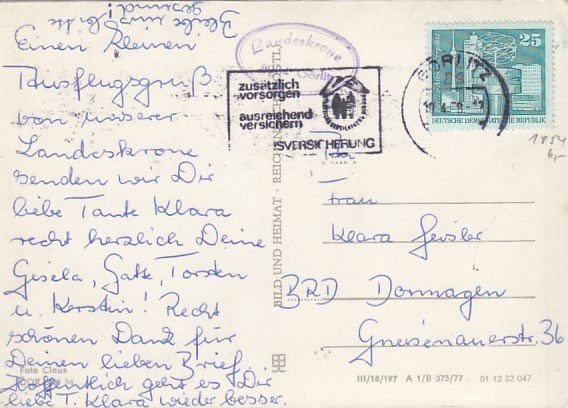 Bleibe uns! bitte
gesund!
Einen kleinen
Ausflugsgruß
von unserer
Landeskrone
senden wir Dir
liebe Tante Klara
recht herzlich Deine
Gisela, Torsten
u. Kerstin! Recht
schönen Dank für
Deinen lieben Brief.
Hoffentlich geht es Dir
liebe T. Klara wieder besser.
Foto Claus
BILD UND HEIMAT · REICHENBACH
Landeskrone
Görlitz
zusätzlich
vorsorgen
ausreichend
versichern
SVERSICHERUNG
GÖRLITZ
25
DEUTSCHE DEMOKRATISCHE REPUBLIK
1854
6,-
Frau
Klara Geisler
BRD Dormagen
Gneisenauerstr. 36
III/18/197 A 1/B 375/77 01 12 32 047